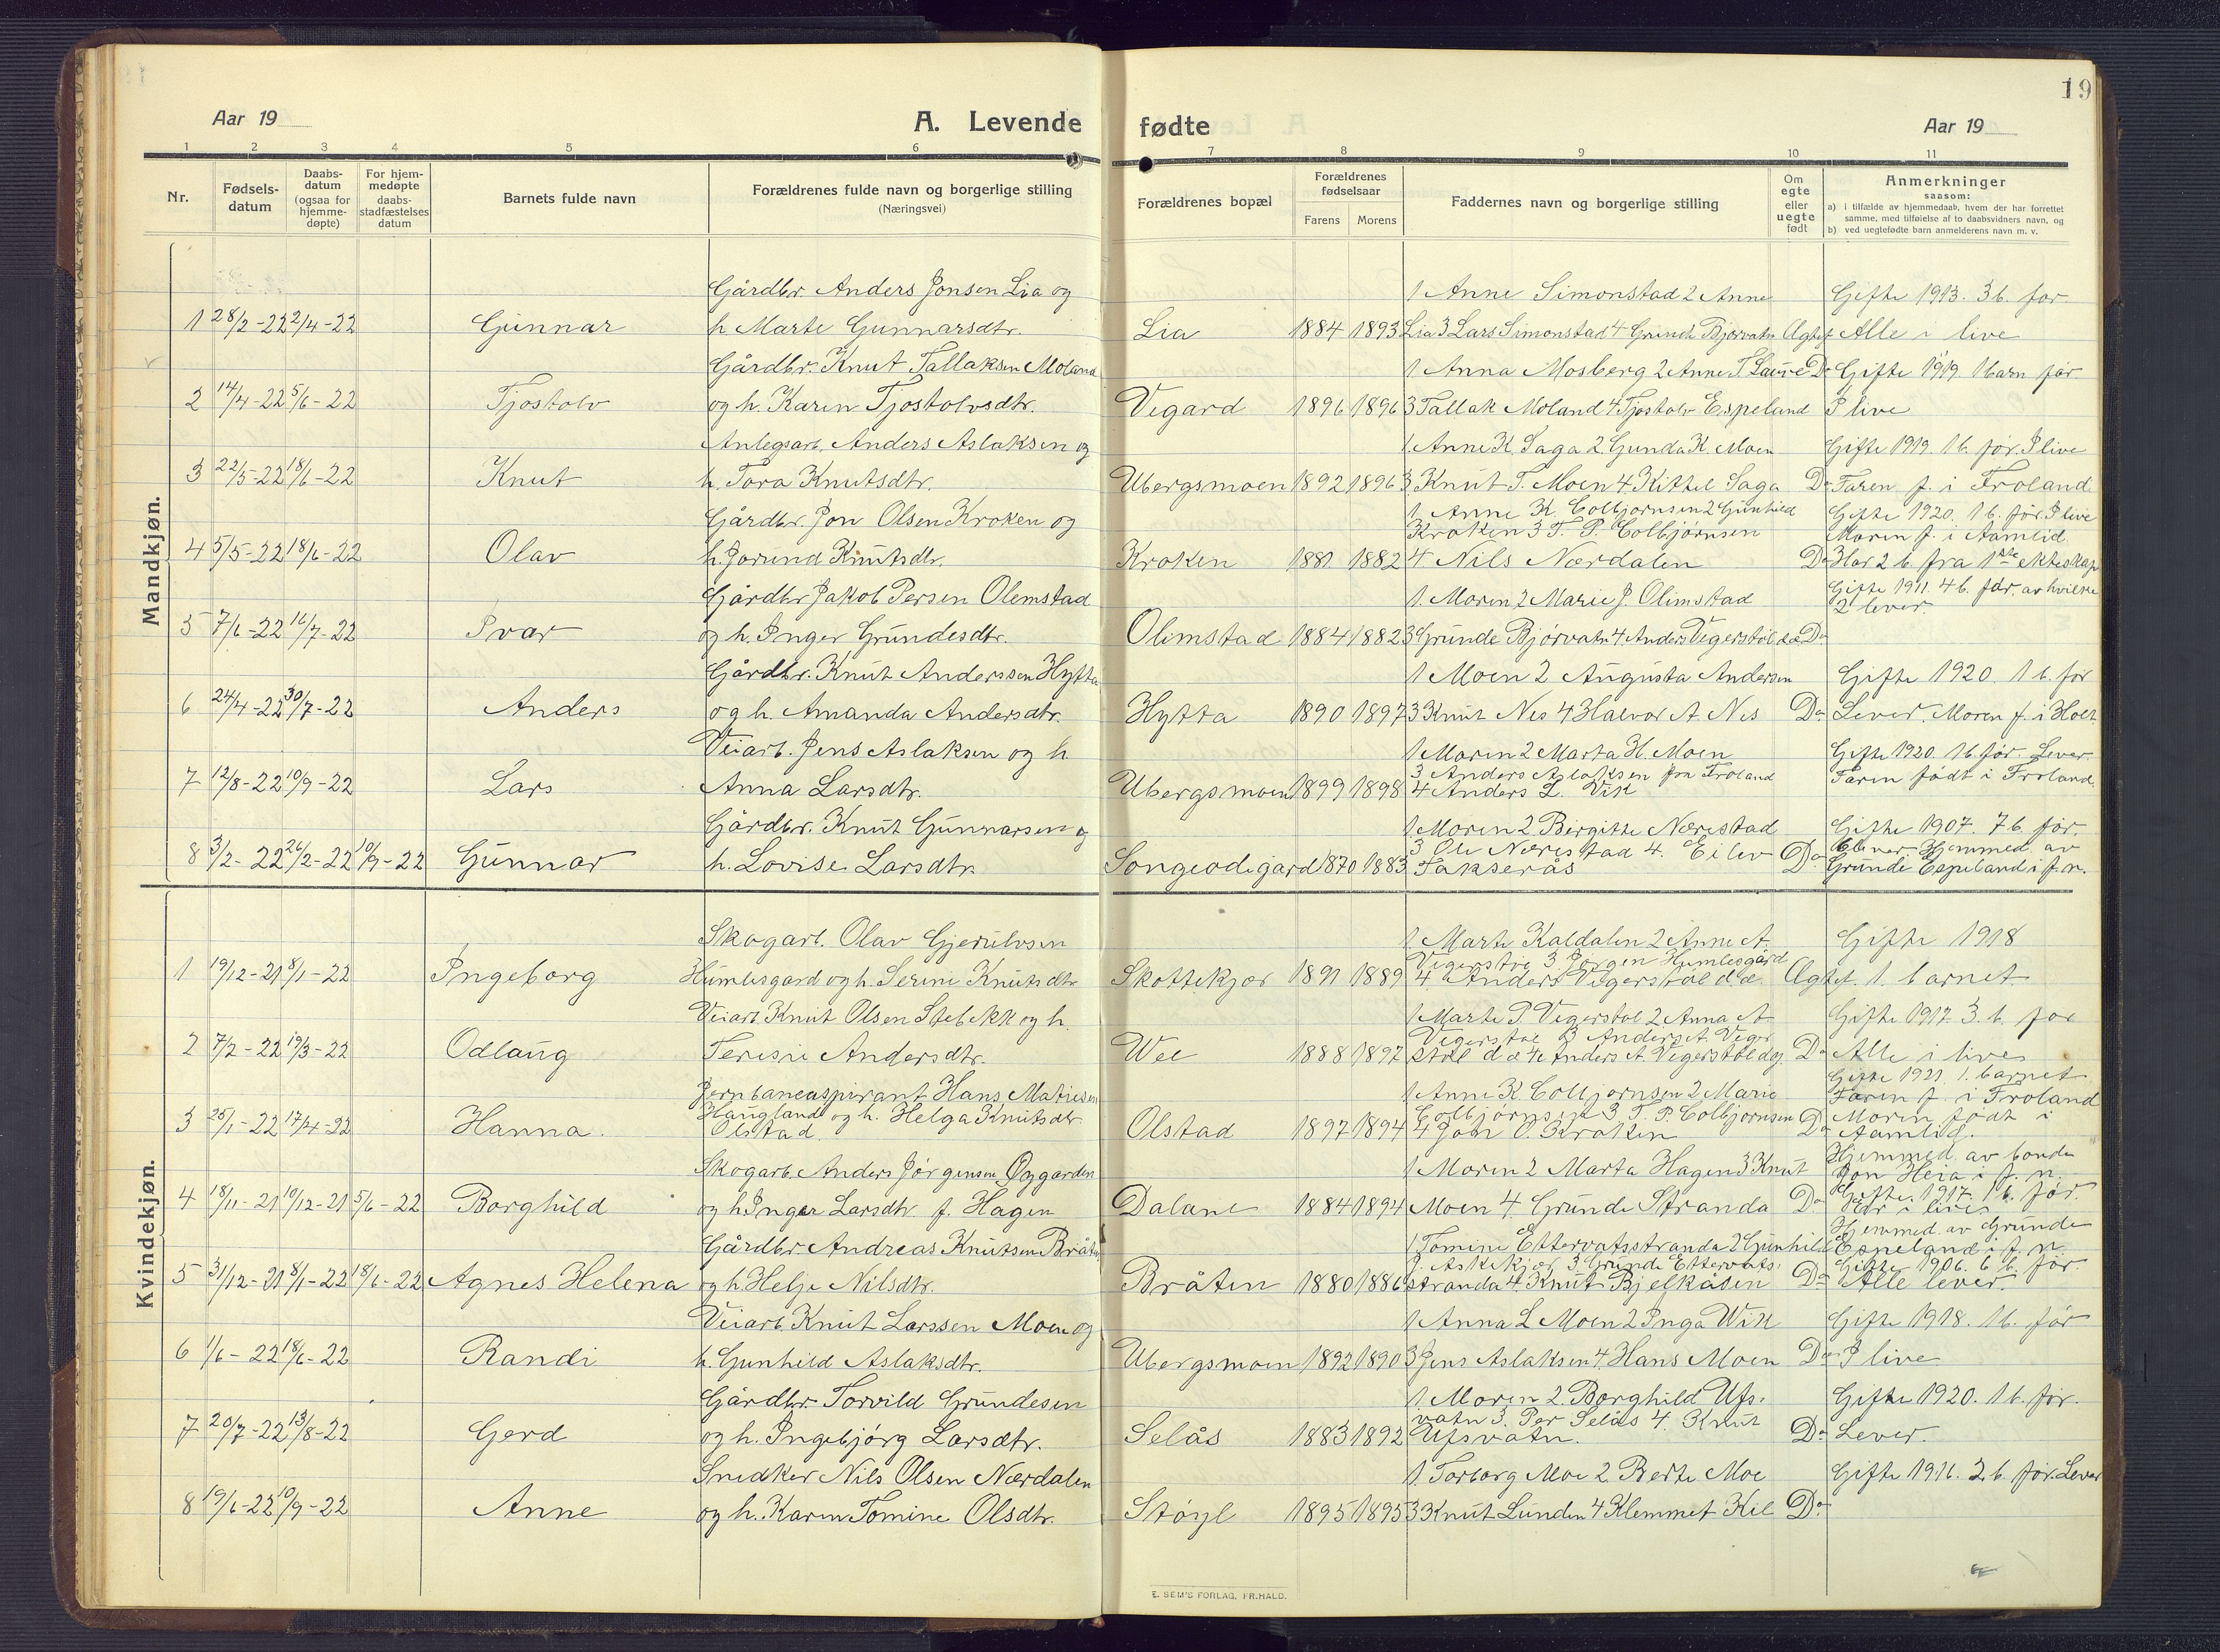 19
Aar 19
A. Levende fødte
Aar 19
1 2 3 4 5 6 7 8 9 10 11
Nr.
Fødsels-
datum
Daabs-
datum
(ogsaa for
hjemme-
døpte)
For hjem-
medøpte
daabs-
stadfæstelses
datum
Barnets fulde navn
Forældrenes fulde navn og borgerlige stilling
(Næringsvei)
Forældrenes bopæl
Forældrenes
fødselsaar
Farens Morens
Faddernes navn og borgerlige stilling
Om
egte
eller
uegte
født
Anmerkninger
saasom:
a) i tilfælde av hjemmedaab, hvem der har forrettet
samme, med tilføielse af to daabsvidners navn, og
b) ved uegtefødte barn anmelderens navn m. v.
Mandkjøn.
Gårdbr. Anders Jonsen Lia og
1 Anne Simonstad 2 Anne
Gifte 1913. 3 b. før
1 28/2-22 2/4-22 Gunnar h. Marte Gunnarsdtr. Lia 1884 1893 Lia 3 Lars Simonstad 4 Grunde Bjorvatn Ægtef. Alle i live
Gårdbr. Knut Tallaksen Moland
1 Anna Mosberg 2 Anne T. Lauve Do Gifte 1919. 1 barn før
2 14/4-22 5/6-22 Tjostolv og h. Karen Tjostolvsdtr. Vegard 1896 1896 3 Tallak Moland 4 Tjostolv Espeland I live
Anlegsarb. Anders Aslaksen og
1. Anne K. Saga 2 Gunda K. Moen
Gifte 1919. 1 b. før. I live
3 22/5-22 18/6-22 Knut h. Tora Knutsdtr. Ubergsmoen 1892 1896 3 Knut T. Moen 4. Kittel Saga Do Faren f. i Froland
Gårdbr. Jon Olsen Kroken og
1. Anne K. Colbjørnsen 2 Gunhild
Gifte 1920. 1 b. før. I live
Kroken 3 T. P. Colbjørnsen
Moren f. i Aamlid
4 5/5-22 18/6-22 Olav h. Jorund Knutsdtr. Kroken 1881 1882 4 Nils Nærdalen Do Har 2 b. fra 1ste ekteskap
Gårdbr Jakob Persen Olimstad
1. Moren 2 Marie J. Olimstad
Gifte 1911. 4 b. før. av hvilke
2 lever.
5 7/6-22 16/7-22 Ivar og h. Inger Grundesdtr. Olimstad 1884 1882 3 Grunde Bjorvatn 4. Anders Vegerstøl d.æ Do
Gårdbr. Knut Anderssen Hytta
1 Moren 2 Augusta Andersen
Gifte 1920. 1 b. før
6 24/4-22 30/7-22 Anders og h. Amanda Andersdtr. Hytta 1890 1897 3 Knut Nes 4 Halvor A. Nes Do Lever. Moren f. i Holt
Veiarb. Jens Aslaksen og h.
1 Moren 2 Marta H. Moen
Gifte 1920. 1 b. før. Lever.
3 Anders Aslaksen fra Froland
Faren født i Froland.
7 12/8-22 10/9-22 Lars Anna Larsdtr. Ubergsmoen 1899 1898 4 Anders L. Vik
Gårdbr. Knut Gunnarsen og
1. Moren 2. Birgitte Nærestad
Gifte 1907. 7 b. før.
3 Ole Nærestad 4. Eilev
Hjemmed. av
8 3/2-22 26/2-22 10/9-22 Gunnar h. Lovise Larsdtr. Songeødegard 1870 1883 Fakserås Do Grunde Espeland i f. n.
Kvindekjøn.
Skogarb. Olav Gjerulvsen
1 Marte Kaldalen 2 Anne A.
Gifte 1918
Vegerstøl 3 Jørgen Humlesgård
1 19/12-21 8/1-22 Ingeborg Humlesgard og h. Serine Knutsdtr Skottekjær 1891 1889 4 Anders Vegerstøl d.æ. Ægtef. 1. barnet
Veiarb. Knut Olsen Stebekk og h.
1 Marte P. Vegerstøl 2 Anna A
Gifte 1917. 3. b. før
Vegerstøl 3 Anders A. Veger
2 7/2-22 19/3-22 Odlaug Teresie Andersdtr. Wee 1888 1897 støl d.æ 4 Anders A. Vegerstøl d.y. Do Alle i live
Gifte 1921. 1. barnet
Jernbaneaspirant Hans Matiesen
1 Anne K Colbjørnsen 2 Marie
Faren f. i Froland
Haugland og h. Helga Knutsdtr
Colbjørnsen 3 T. P. Colbjørnsen
Moren født i
3 25/1-22 17/4-22 Hanna. Olstad. Olstad 1897 1894 4 Jon O. Kroken Do Aamlid.
Hjemmed. av bonde
Skogarb. Anders Jørgensen Øygarden
1 Moren 2 Marta Hagen 3 Knut
Jon Heia i f. n.
Gifte. 1917. 1 b. før.
4 18/11-21 10/12-21 5/6-22 Borghild og h. Inger Larsdtr f. Hagen Dalane 1884 1894 Moen 4. Grunde Stranda Do Er i live
Hjemmed. av Grunde
Gårdbr. Andreas Knutsen Bråten
1 Tomine Ettervatsstranda 2 Gunhild
Espeland i f. n.
J. Askekjær 3 Grunde Ettervats-
Gifte 1906. 6 b. før
5 31/12-21 8/1-22 18/6-22 Agnes Helena og h. Helje Nilsdtr. Bråten 1880 1886 stranda 4. Knut Bjelkåsen Do Alle lever.
Veiarb. Knut Larssen Moen og
1 Anna L Moen 2 Inga Wik
Gifte 1918. 1 b. før
6 1/6-22 18/6-22 Randi h. Gunhild Aslaksdtr. Ubergsmoen 1892 1890 3 Jens Aslaksen 4. Hans Moen Do I live
Gårdbr Torvild Grundesen
1 Moren 2. Borghild Ufs-
Gifte 1920. 1 b. før.
vatn 3. Per Selås 4. Knut
7 20/7-22 13/8-22 Gerd og h. Ingebjørg Larsdtr. Selås 1883 1892 Ufsvatn. Do Lever.
Snedker Nils Olsen Nærdalen
1. Torborg Moe 2. Berte Moe
Gifte 1916. 2. b. før. Lever
8 19/6-22 10/9-22 Anne og h. Karen Tomine Olsdtr. Støyl 1895 1895 3 Knut Lunden 4 Klemmet Kil Do
E. SEM'S FORLAG, FR.HALD.